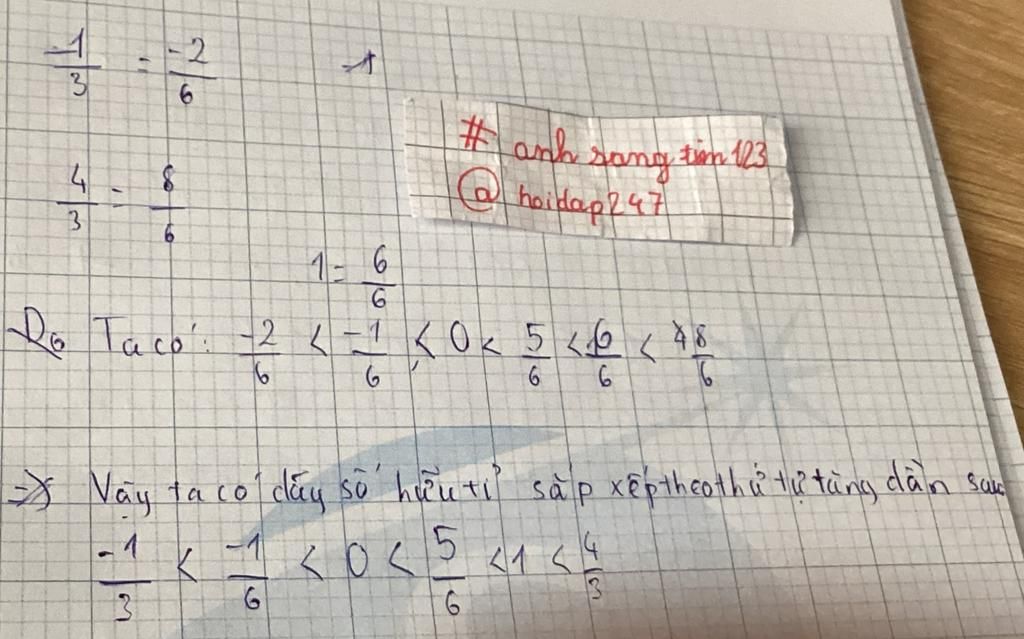 -1/3 = -2/6
# anh sang tim 123
@ hoidap247
4/3 = 8/6
1 = 6/6
Ta có: -2/6 < -1/6 < 0 < 5/6 < 6/6 < 8/6
=> Vậy ta có dãy số hữu tỉ sắp xếp theo thứ tự tăng dần sau
-1/3 < -1/6 < 0 < 5/6 < 1 < 4/3